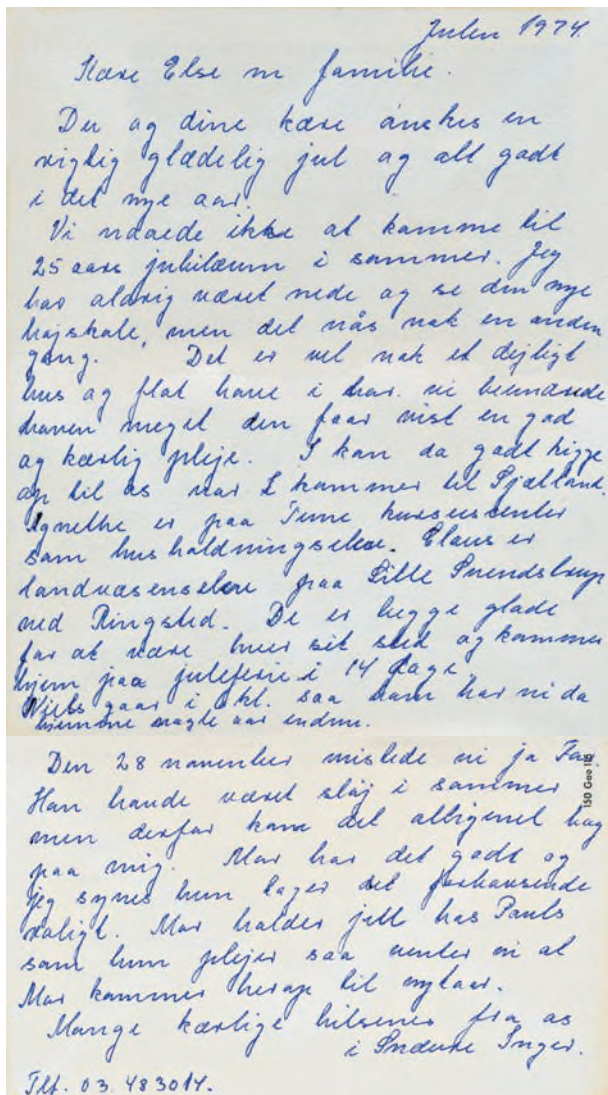 Julen 1974.
Kære Else m familie.
Du og dine kære ønskes en
rigtig glædelig jul og alt godt
i det nye aar.
Vi naaede ikke at komme til
25 aars jubilæum i sommer. Jeg
har aldrig været nede og se den nye
højskole, men det nås nok en anden
gang. Det er vel nok et dejligt
hus og flot have i har. vi beundrede
haven meget den faar vist en god
og kærlig pleje. I kan da godt kigge
op til os naar I kommer til Sjælland.
Agnethe er paa Tune kursuscenter
som husholdningselev. Claus er
landvæsenselev paa Lille Svendstrup
ved Ringsted. De er begge glade
for at være hver sit sted og kommer
hjem paa juleferie i 14 dage.
Niels gaar i kl. saa ham har vi da
hjemme nogle aar endnu.
Den 28 november mistede vi jo Far
Han havde været sløj i sommer
men derfor kom det alligevel bag
paa mig. Mor har det godt og
jeg synes hun tager det forhavsende
roligt. Mor holder jull hos Pauls
som hun plejer saa venter vi at
Mor kommer herop til nytaar.
Mange kærlige hilsener fra os
i Snævre Inger.
Tlf. 03 483014.
ISO Gae